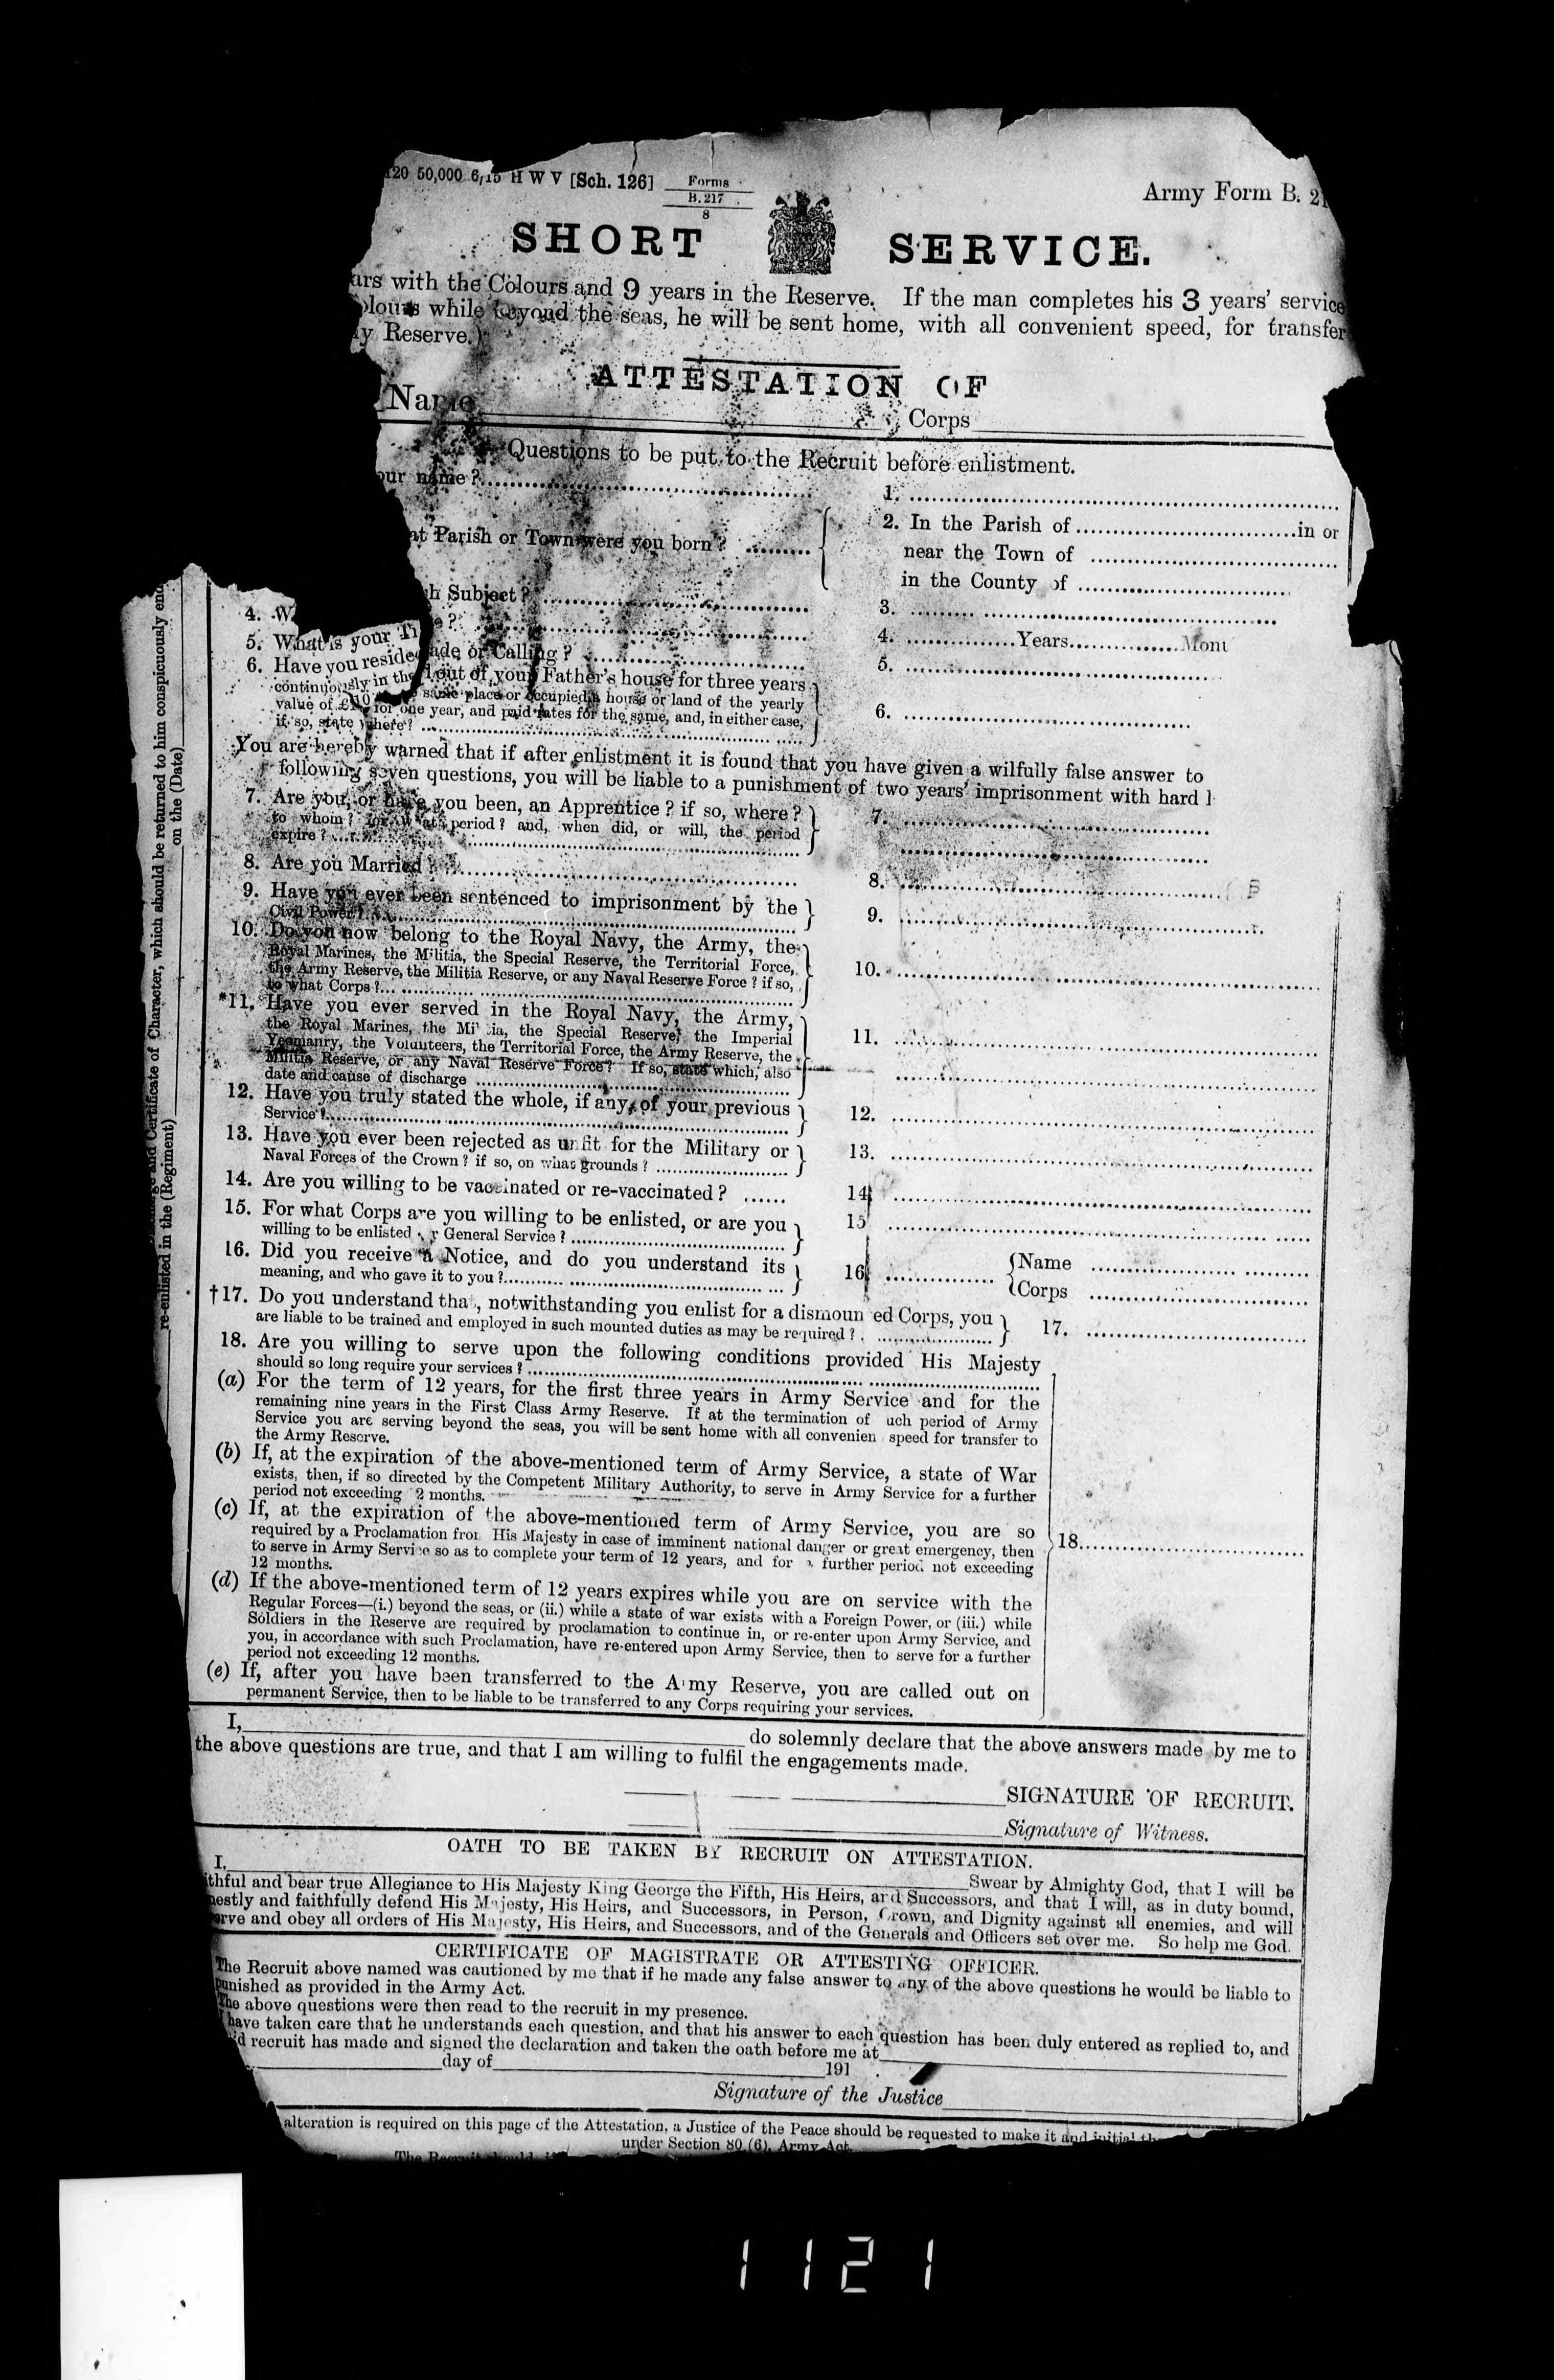 120 50,000 6/15 H W V [Sch. 126] Forms
B. 217
8
Army Form B. 21
SHORT SERVICE.
ars with the Colours and 9 years in the Reserve. If the man completes his 3 years' service
olours while beyond the seas, he will be sent home, with all convenient speed, for transfer
y Reserve.)
ATTESTATION OF
Name Corps
Questions to be put to the Recruit before enlistment.
our name? 1.
at Parish or Town were you born? 2. In the Parish of in or
near the Town of
in the County of
h Subject? 3.
4. W e? 4. Years Mont
5. What is your Tr ade or Calling? 5.
6. Have you resided out of your Father's house for three years
continuously in the same place or occupied a house or land of the yearly
value of £10 for one year, and paid rates for the same, and, in either case, 6.
if so, state where?
You are hereby warned that if after enlistment it is found that you have given a wilfully false answer to
following seven questions, you will be liable to a punishment of two years' imprisonment with hard l
7. Are you, or have you been, an Apprentice? if so, where? 7.
to whom? for what period? and, when did, or will, the period
expire?
8. Are you Married? 8.
9. Have you ever been sentenced to imprisonment by the 9.
Civil Power?
10. Do you now belong to the Royal Navy, the Army, the
Royal Marines, the Militia, the Special Reserve, the Territorial Force, 10.
the Army Reserve, the Militia Reserve, or any Naval Reserve Force? if so,
to what Corps?
*11. Have you ever served in the Royal Navy, the Army,
the Royal Marines, the Mi ia, the Special Reserve, the Imperial 11.
Yeomanry, the Volunteers, the Territorial Force, the Army Reserve, the
Militia Reserve, or any Naval Reserve Force? If so, state which, also
date and cause of discharge
12. Have you truly stated the whole, if any, of your previous 12.
Service?
13. Have you ever been rejected as unfit for the Military or 13.
Naval Forces of the Crown? if so, on what grounds?
14. Are you willing to be vaccinated or re-vaccinated? 14
15. For what Corps are you willing to be enlisted, or are you 15
willing to be enlisted r General Service?
16. Did you receive a Notice, and do you understand its 16 Name
meaning, and who gave it to you? Corps
†17. Do you understand tha , notwithstanding you enlist for a dismoun ed Corps, you 17.
are liable to be trained and employed in such mounted duties as may be required?
18. Are you willing to serve upon the following conditions provided His Majesty
should so long require your services?
(a) For the term of 12 years, for the first three years in Army Service and for the
remaining nine years in the First Class Army Reserve. If at the termination of uch period of Army
Service you are serving beyond the seas, you will be sent home with all convenien speed for transfer to
the Army Reserve.
(b) If, at the expiration of the above-mentioned term of Army Service, a state of War
exists, then, if so directed by the Competent Military Authority, to serve in Army Service for a further
period not exceeding 2 months.
(c) If, at the expiration of the above-mentioned term of Army Service, you are so
required by a Proclamation fro His Majesty in case of imminent national danger or great emergency, then 18.
to serve in Army Service so as to complete your term of 12 years, and for a further period not exceeding
12 months.
(d) If the above-mentioned term of 12 years expires while you are on service with the
Regular Forces—(i.) beyond the seas, or (ii.) while a state of war exists with a Foreign Power, or (iii.) while
Soldiers in the Reserve are required by proclamation to continue in, or re-enter upon Army Service, and
you, in accordance with such Proclamation, have re-entered upon Army Service, then to serve for a further
period not exceeding 12 months.
(e) If, after you have been transferred to the A my Reserve, you are called out on
permanent Service, then to be liable to be transferred to any Corps requiring your services.
I, do solemnly declare that the above answers made by me to
the above questions are true, and that I am willing to fulfil the engagements made.
SIGNATURE OF RECRUIT.
Signature of Witness.
OATH TO BE TAKEN BY RECRUIT ON ATTESTATION.
I, Swear by Almighty God, that I will be
ithful and bear true Allegiance to His Majesty King George the Fifth, His Heirs, and Successors, and that I will, as in duty bound,
nestly and faithfully defend His Majesty, His Heirs, and Successors, in Person, Crown, and Dignity against all enemies, and will
erve and obey all orders of His Majesty, His Heirs, and Successors, and of the Generals and Officers set over me. So help me God.
CERTIFICATE OF MAGISTRATE OR ATTESTING OFFICER.
The Recruit above named was cautioned by me that if he made any false answer to any of the above questions he would be liable to
punished as provided in the Army Act.
The above questions were then read to the recruit in my presence.
I have taken care that he understands each question, and that his answer to each question has been duly entered as replied to, and
id recruit has made and signed the declaration and taken the oath before me at
day of 191 .
Signature of the Justice
alteration is required on this page of the Attestation, a Justice of the Peace should be requested to make it and initial th
under Section 80 (6), Army Act.
The Recruit should
and Certificate of Character, which should be returned to him conspicuously end
re-enlisted in the (Regiment) on the (Date)
1121